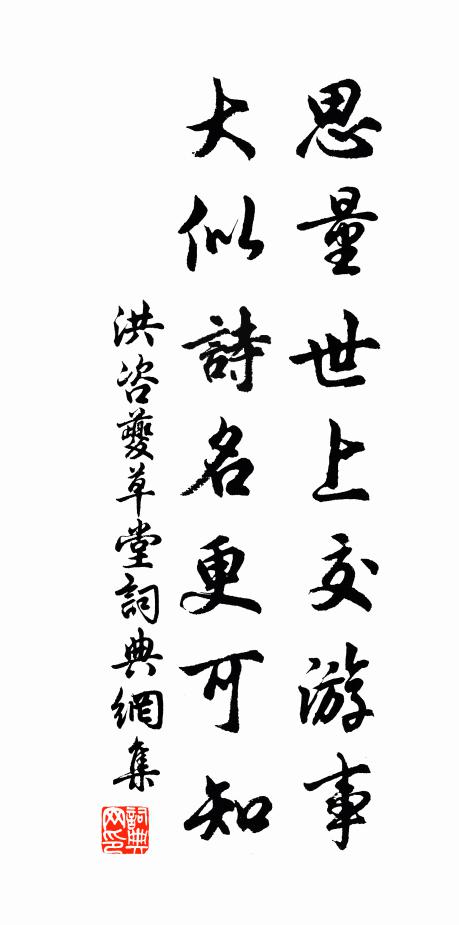 思量世上交游事
大似詩名更可知
洪咨夔草堂詞典網集
詞典網印